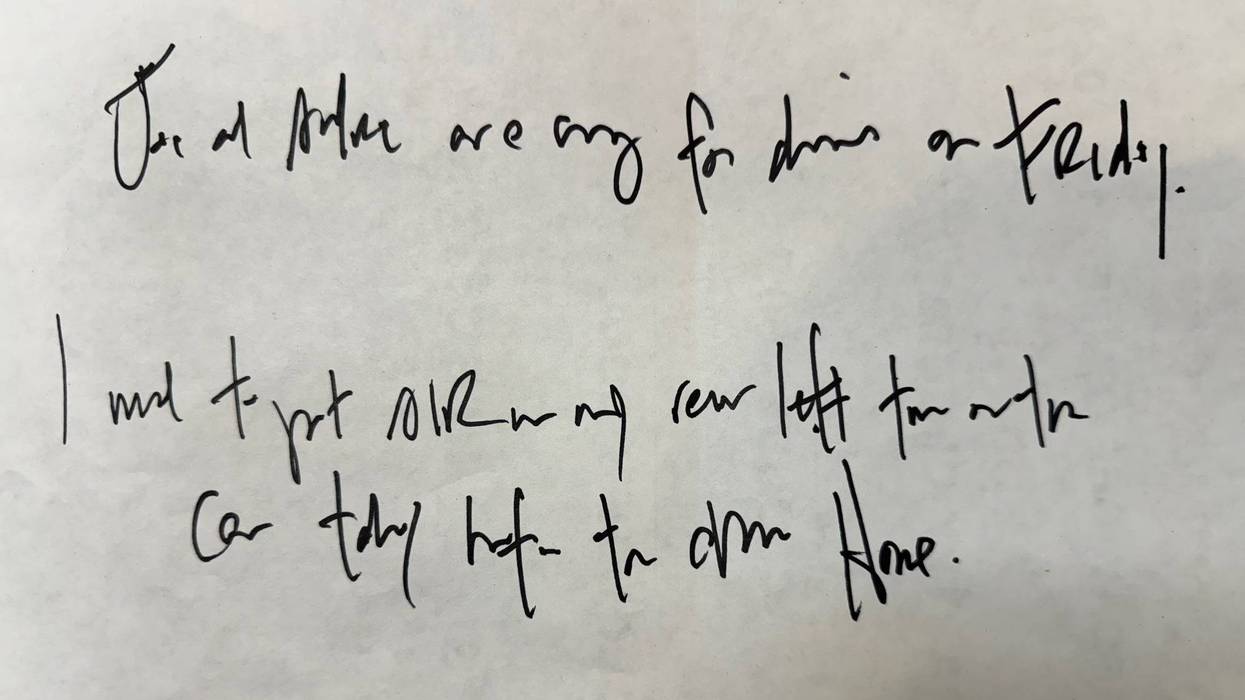 and are coming for dinner on Friday.
I need to put AIR in my rear left tire on the
Car today before the drive Home.